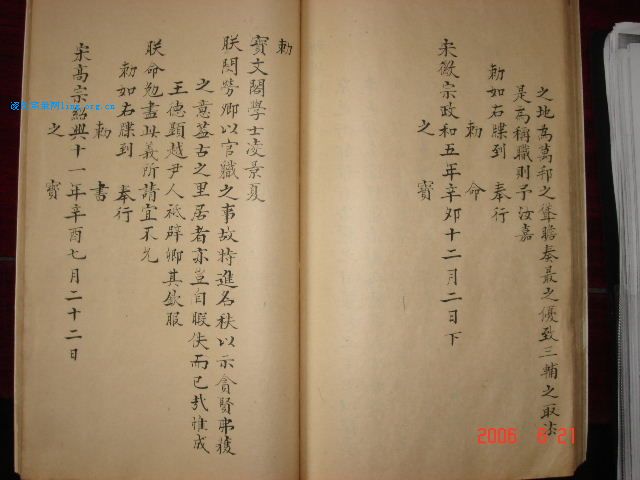 之地為萬邦之聳瞻奏最之優致三輔之取法
是為稱職則予汝嘉
勅如右牒到 奉行
勅 命
宋徽宗政和五年辛夘十二月二日下
之 寶
勅
寶文閣學士凌景夏
朕閔勞卿以官職之事故特進名秩以示貪賢弗獲
之意蓋古之里居者亦豈自暇佚而已哉惟成
王德顯越尹人祗辟卿其欽服
朕命勉盡臣義所請宜不允
勅如右牒到 奉行
勅 書
宋高宗紹興十一年辛酉七月二十二日
之 寶
凌氏宗親网ling.org.cn
2006 8 21